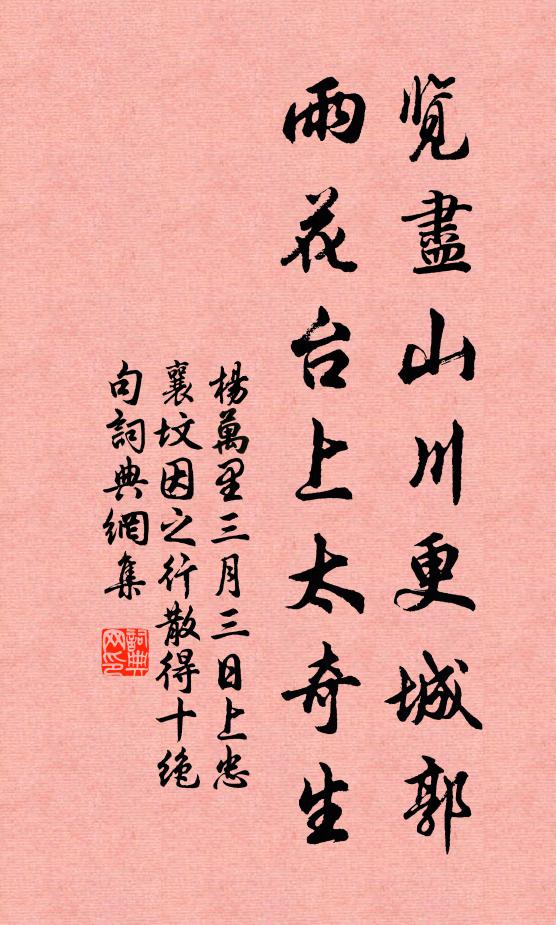 览盡山川更城郭
雨花台上太奇生
楊萬里三月三日上忠
襄坟因之行散得十绝
句詞典網集
詞典网印